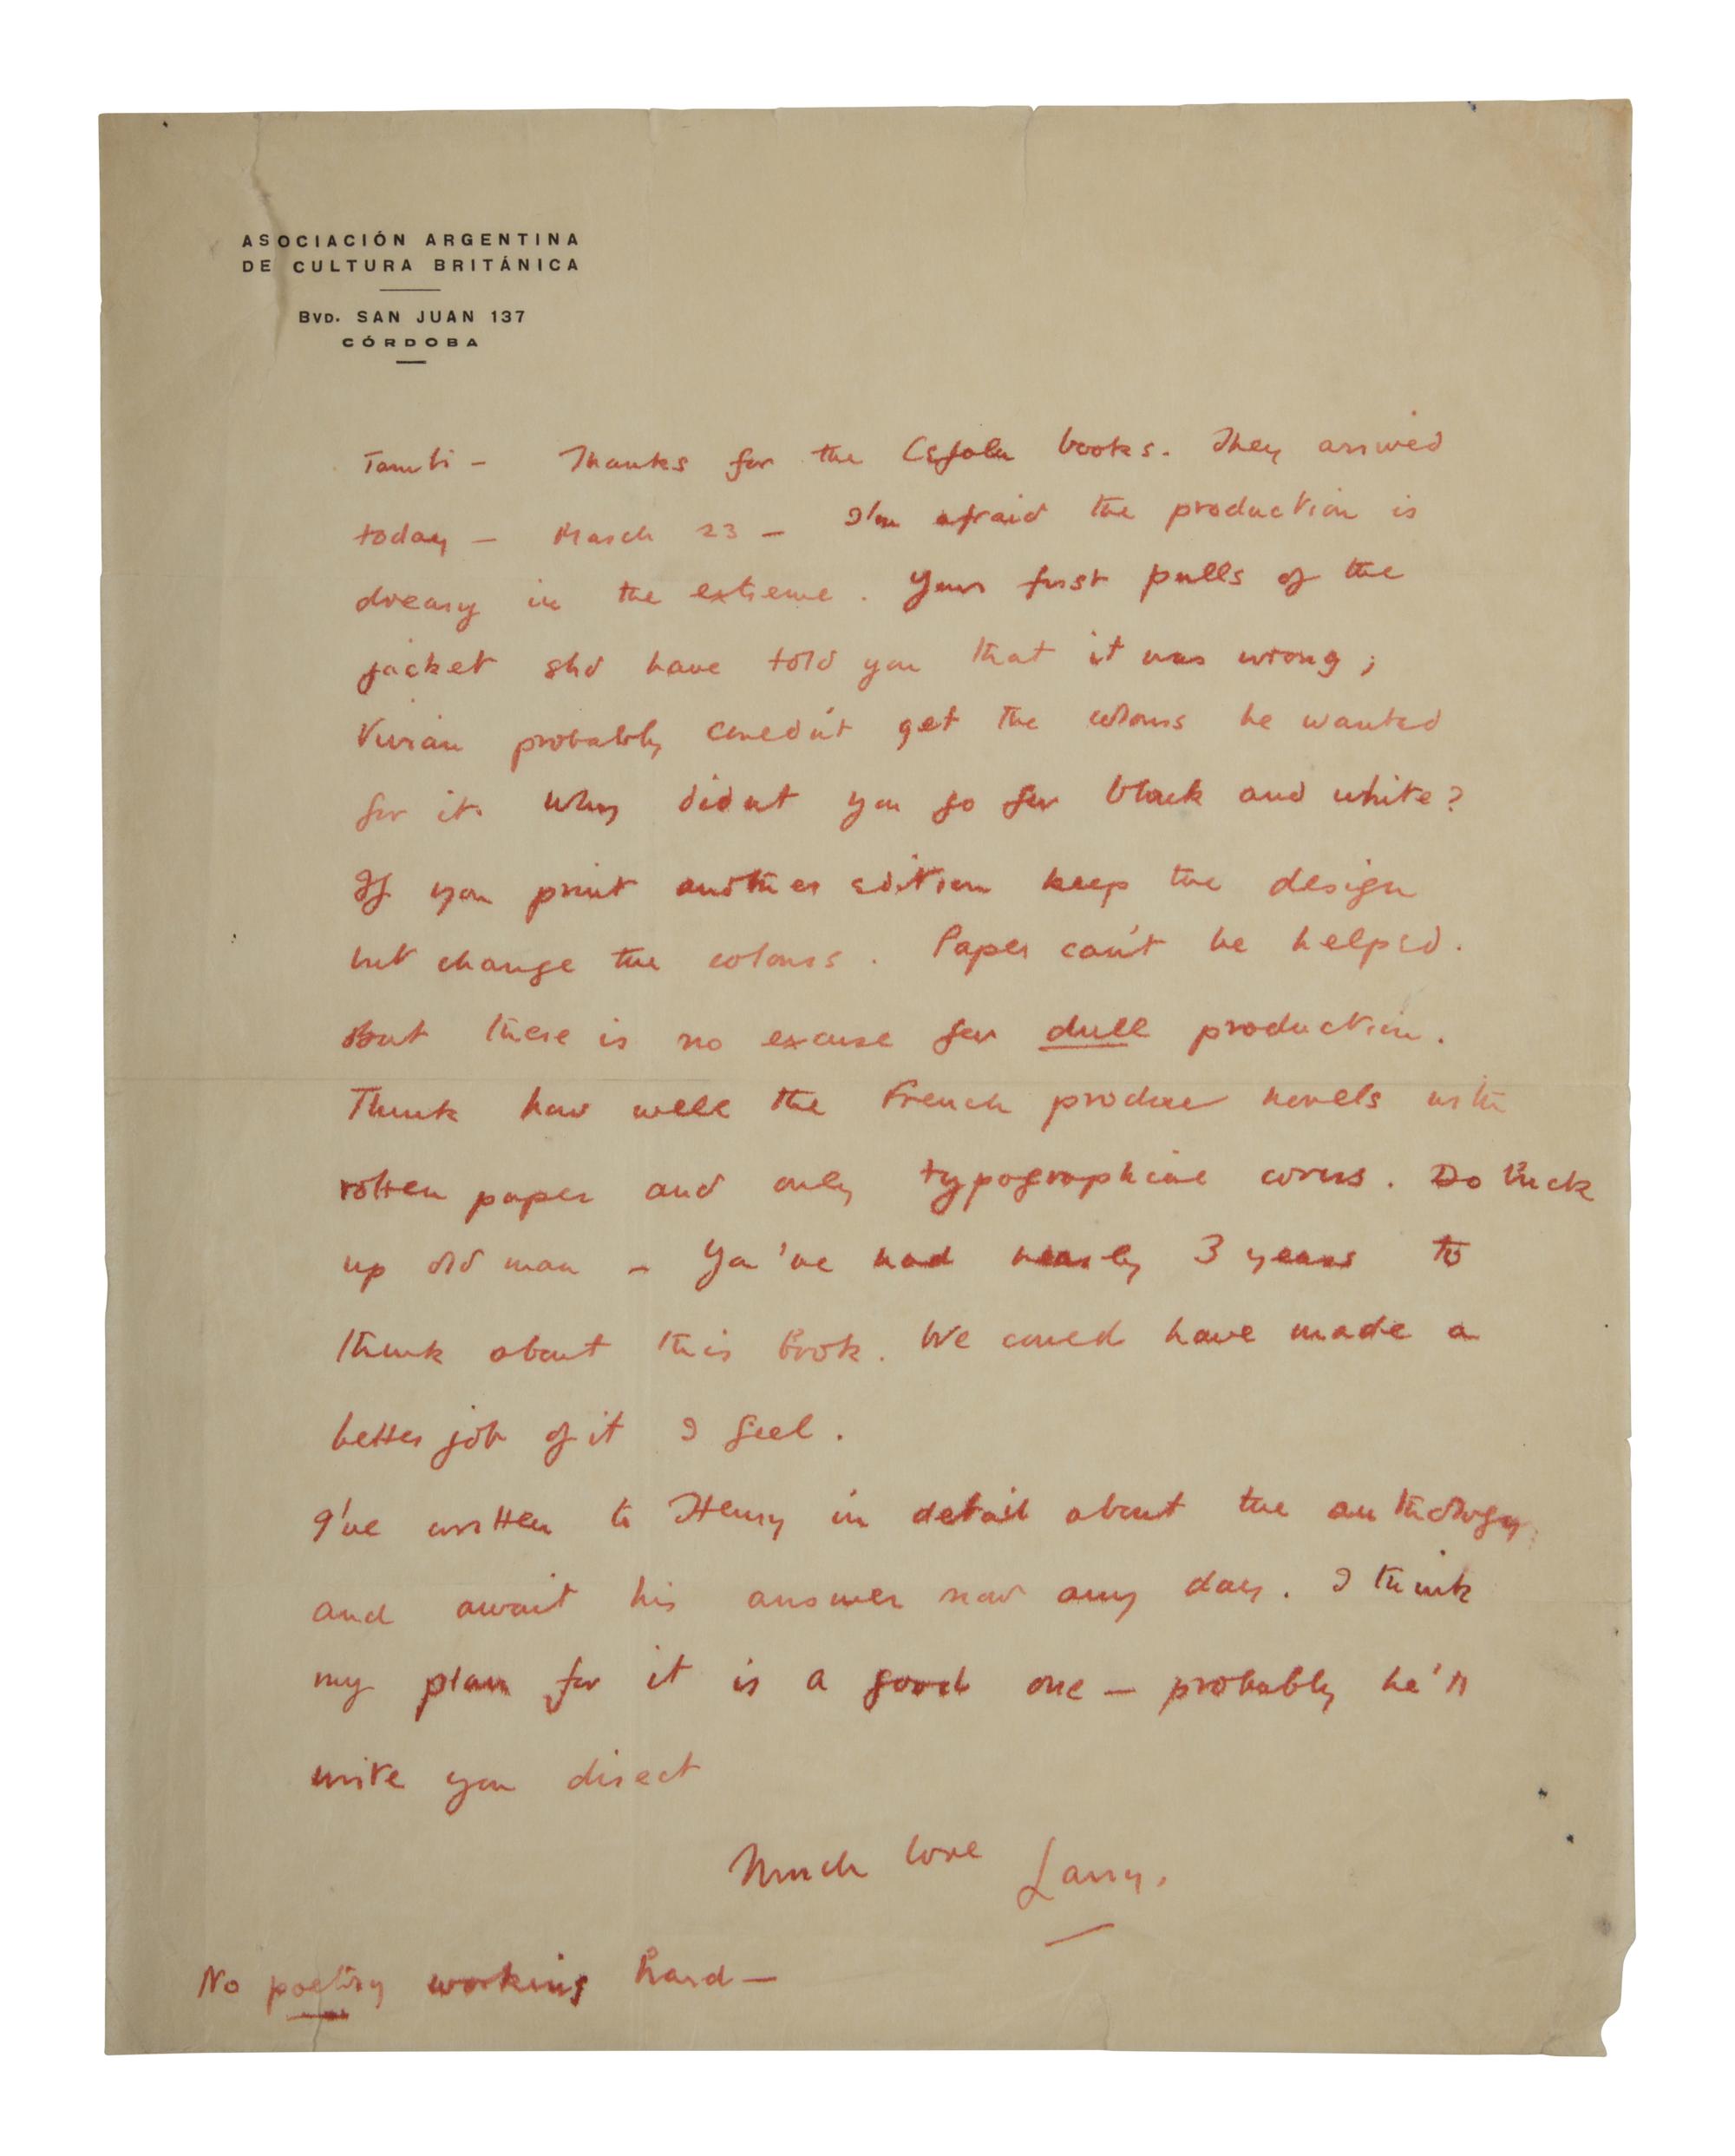 ASOCIACIÓN ARGENTINA
DE CULTURA BRITÁNICA
BVD. SAN JUAN 137
CÓRDOBA
Tambi – Thanks for the Cefalu books. They arrived
today – March 23 – I'm afraid the production is
dreary in the extreme. Your first pulls of the
jacket shd have told you that it was wrong;
Vivian probably could'nt get the colours he wanted
for it. Why didnt you go for black and white?
If you print another edition keep the design
but change the colours. Paper can't be helped.
But there is no excuse for dull production.
Think how well the French produce novels with
rotten paper and only typographical covers. Do buck
up old man – You've had nearly 3 years to
think about this book. We could have made a
better job of it I feel.
I've written to Henry in detail about the anthology
and await his answer now any day. I think
my plan for it is a good one – probably he'll
write you direct
Much love Larry.
No poetry working hard –